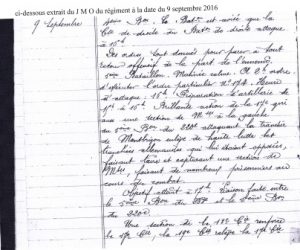 ci-dessous extrait du J M O du régiment à la date du 9 septembre 2016
9 Septembre
5ème Bon. Le Bat est avisé que la
Cie de droite du Bat de droite attaque
à 15h
Des ordres sont donnés pour parer à tout
retour offensif de la part de l'ennemi
5ème Bataillon. Matinée calme. A 8h ordre
d'opérations l'ordre particulier No 174. Heure
d'attaque 15h. Préparation d'artillerie de
à 15h. Brillante action de la 17e qui
avec une section de Mses à la gauche
du 5ème Bon du 320e attaquant la tranchée
de haute lutte les
tranchées allemandes qui lui étaient opposées,
faisant taire et capturant une section de
Mses, faisant de nombreux prisonniers au
cours du combat.
Objectif atteint à 17h. Liaison faite entre
le 5ème Bon du et le 5ème Bon
du 320e
Une section de la 18e Cie renforce
la 17e Cie, la 19e Cie relaye la 17e Cie